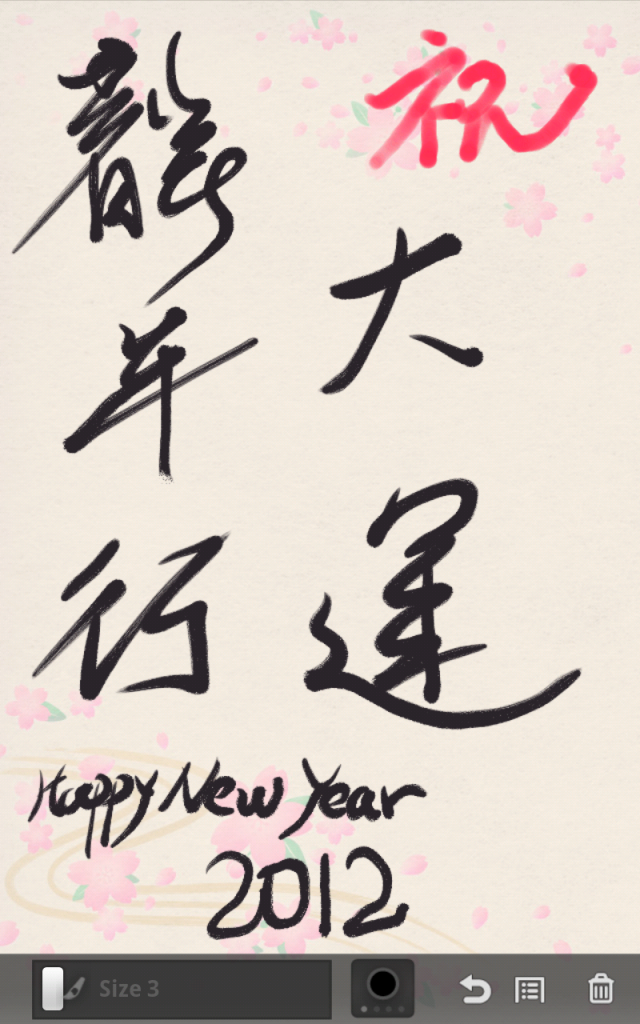 祝
龍年行
大運
Happy New Year
2012
Size 3